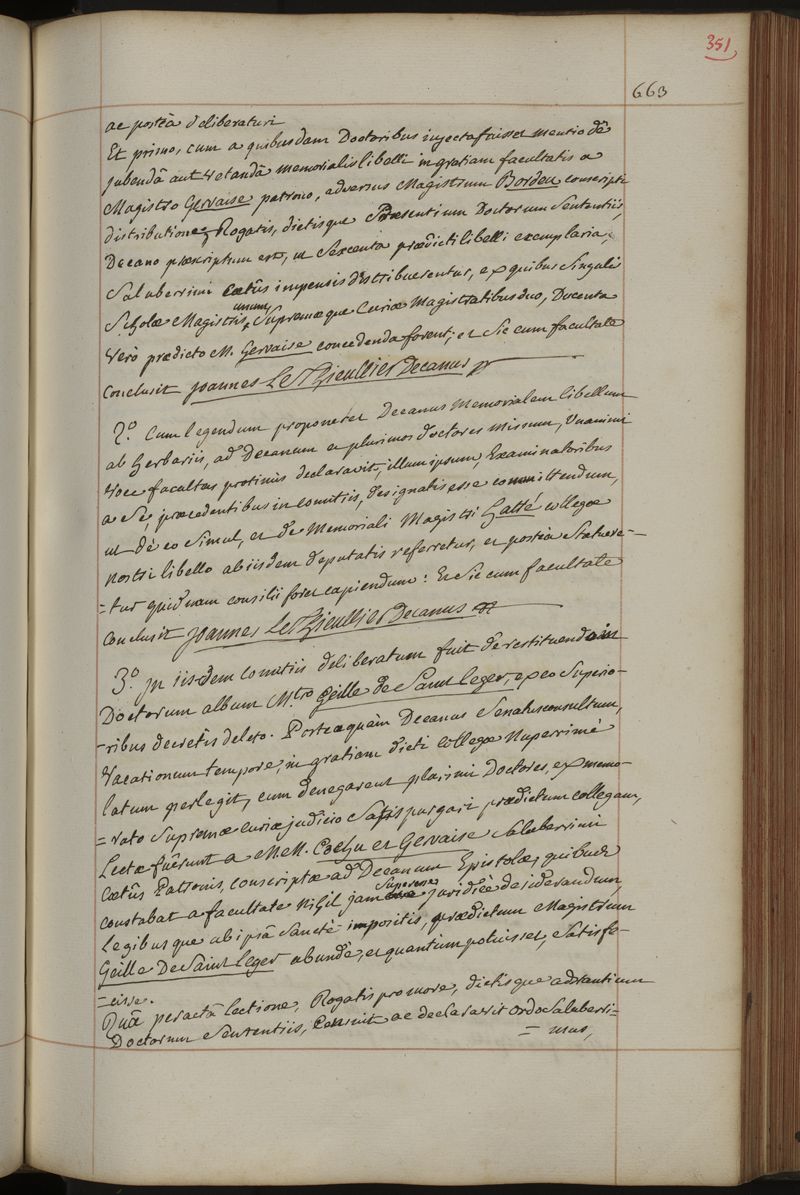 351
663
ac posteà deliberaturi
Et primo, cum a quibusdam Doctoribus injecta fuisset mentio dê
jubendâ aut vetandâ memorialis libelli in gratiam facultatis a
Magistro Gervaise patrono, adversus Magistrum Bordeu conscripti
distributione; Rogatis, dictisque Praesentium Doctorum Sententiis,
Decano praescriptum est, ut Sexcenta praedicti libelli exemplaria,
Saluberrimi Coetûs impensis distribuerentur, ex quibus Singulis
Scholae Magistris unum, Supremaeque Curiae Magistratibus duo, Ducenta
verò praedicto M. Gervaise concedenda forent; et Sic cum facultate
Conclusit Joannes Le Thieullier Decanus
2.° Cum legendum proponeret Decanus Memorialem libellum
ab herbariis, ad Decanum et plurimos doctores missum, Unanimi
voce facultas protinus declaravit, illum ipsum, Examinatoribus
a Se, praecedentibus in comitiis, designatis esse committendum,
ut dê eo Simul, et de Memoriali Magistri Gatté collegae
nostri libello ab iisdem deputatis referretur, et posteà Statuere-
=tur quidnam consilii foret capiendum: Et Sic cum facultate
Conclusit Joannes Le Thieullier Decanus
3.° In iisdem Comitiis deliberatum fuit de restituendo in
Doctorum album M.tro Geille de Saint leger, ex eo Superio-
-ribus decretis deleto. Posteaquam Decanus Senatusconsultum,
vacationum tempore, in gratiam dicti Collegae nuperrimè
latum perlegit, cum denegarent plurimi Doctores, ex memo-
=rato Supremae Curiae judicio Satis purgari praedictum collegam,
Lectae fuêrunt a M.M. Cochu et Gervaise Saluberrimi
Coetûs Patronis, conscriptae ad Decanum Epistolae, quibus
constabat a facultate nihil jam Superesse juridicè desiderandum,
Legibusque ab ipsâ Sancitè impositis, praedictum Magistrum
Geille De Saint leger abundè, et quantum potuisset, Satisfe-
=cisse.
Quâ peractâ lectione, Rogatis pro more, dictisque adstantium
Doctorum Sententiis, Censuit ac declaravit Ordo Saluberri=
=mus,